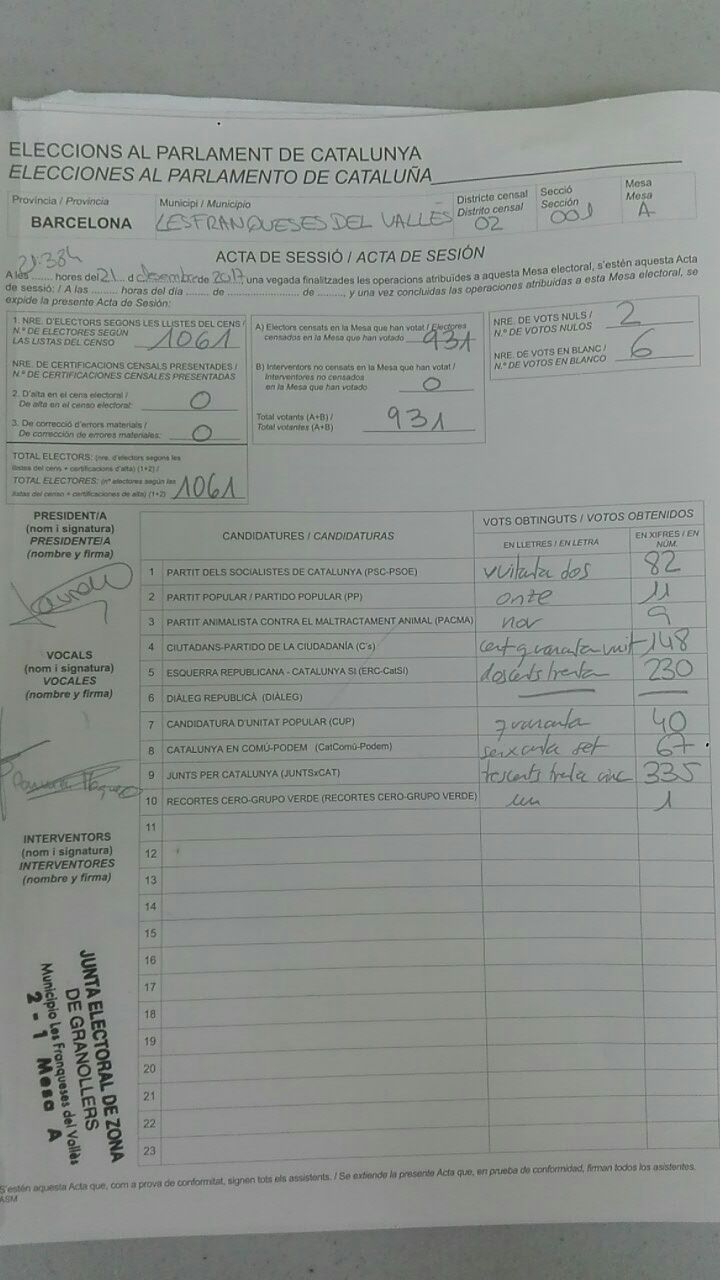 ELECCIONS AL PARLAMENT DE CATALUNYA
ELECCIONES AL PARLAMENTO DE CATALUÑA
Província / Provincia
BARCELONA
Municipi / Municipio
LES FRANQUESES DEL VALLES
Districte censal
Distrito censal
02
Secció
Sección
001
Mesa
Mesa
A
ACTA DE SESSIÓ / ACTA DE SESIÓN
A les ........ hores del 21 d desembre de 2017, una vegada finalitzades les operacions atribuïdes a aquesta Mesa electoral, s'estén aquesta Acta
de sessió: / A las ........ horas del día ........ de ........ de ........, y una vez concluidas las operaciones atribuidas a esta Mesa electoral, se
expide la presente Acta de Sesión:
1. NRE. D'ELECTORS SEGONS LES LLISTES DEL CENS /
N.º DE ELECTORES SEGÚN
LAS LISTAS DEL CENSO 1061
NRE. DE CERTIFICACIONS CENSALS PRESENTADES /
N.º DE CERTIFICACIONES CENSALES PRESENTADAS
2. D'alta en el cens electoral /
De alta en el censo electoral: 0
3. De correcció d'errors materials /
De corrección de errores materiales: 0
TOTAL ELECTORS: (nre. d'electors segons les
llistes del cens + certificacions d'alta) (1+2) /
TOTAL ELECTORES: (nº electores según las
listas del censo + certificaciones de alta) (1+2) 1061
A) Electors censats en la Mesa que han votat / Electores
censados en la Mesa que han votado 931
B) Interventors no censats en la Mesa que han votat /
Interventores no censados
en la Mesa que han votado 0
Total votants (A+B) /
Total votantes (A+B) 931
NRE. DE VOTS NULS /
N.º DE VOTOS NULOS 2
NRE. DE VOTS EN BLANC /
N.º DE VOTOS EN BLANCO 6
PRESIDENT/A
(nom i signatura)
PRESIDENTE/A
(nombre y firma)
VOCALS
(nom i signatura)
VOCALES
(nombre y firma)
INTERVENTORS
(nom i signatura)
INTERVENTORES
(nombre y firma)
CANDIDATURES / CANDIDATURAS
VOTS OBTINGUTS / VOTOS OBTENIDOS
EN LLETRES / EN LETRA
EN XIFRES / EN NÚM.
1 PARTIT DELS SOCIALISTES DE CATALUNYA (PSC-PSOE) vuitanta dos 82
2 PARTIT POPULAR / PARTIDO POPULAR (PP) onze 11
3 PARTIT ANIMALISTA CONTRA EL MALTRACTAMENT ANIMAL (PACMA) nov 9
4 CIUTADANS-PARTIDO DE LA CIUDADANÍA (C's) cent quaranta vuit 148
5 ESQUERRA REPUBLICANA - CATALUNYA SÍ (ERC-CatSí) doscents trenta 230
6 DIÀLEG REPUBLICÀ (DIÀLEG)
7 CANDIDATURA D'UNITAT POPULAR (CUP) quaranta 40
8 CATALUNYA EN COMÚ-PODEM (CatComú-Podem) seixanta set 67
9 JUNTS PER CATALUNYA (JUNTSxCAT) trescents trenta cinc 335
10 RECORTES CERO-GRUPO VERDE (RECORTES CERO-GRUPO VERDE) un 1
11
12
13
14
15
16
17
18
19
20
21
22
23
JUNTA ELECTORAL DE ZONA
DE GRANOLLERS
Municipio Les Franqueses del Vallès
2 - 1 Mesa A
S'estén aquesta Acta que, com a prova de conformitat, signen tots els assistents. / Se extiende la presente Acta que, en prueba de conformidad, firman todos los asistentes.
ASM